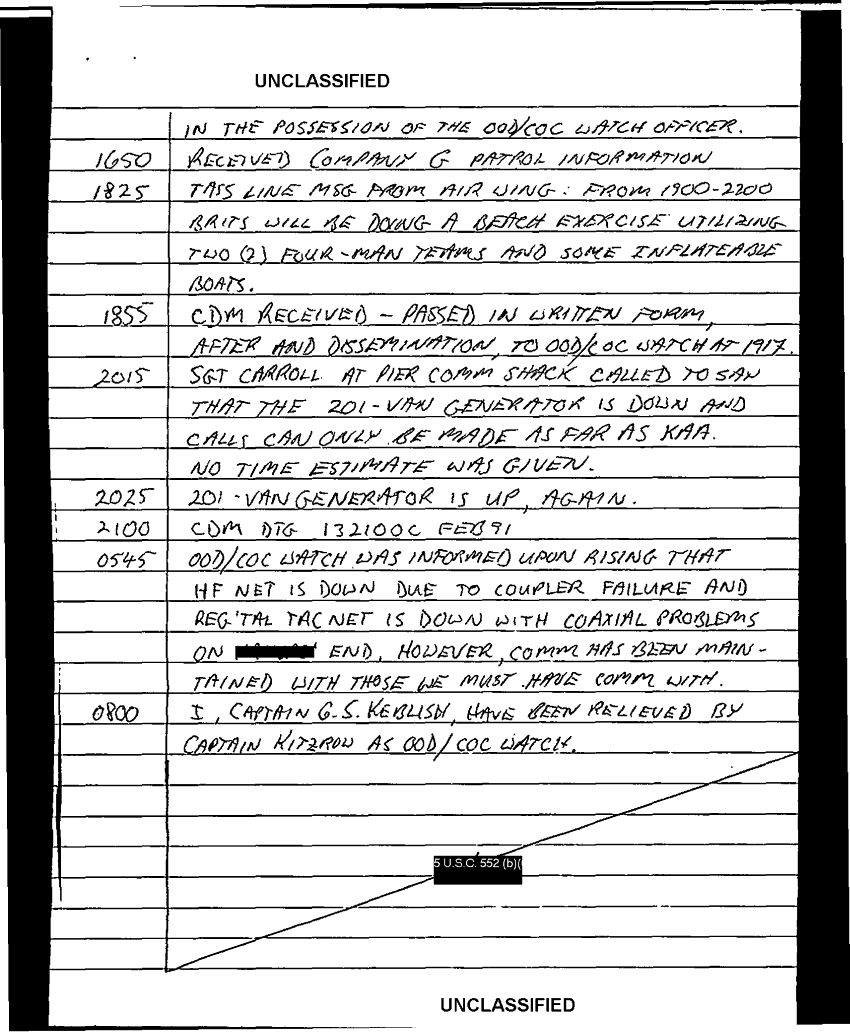 UNCLASSIFIED
IN THE POSSESSION OF THE OOD/COC WATCH OFFICER.
1650 RECEIVED COMPANY G PATROL INFORMATION
1825 TASS LINE MSG FROM AIR WING: FROM 1900-2200
BRITS WILL BE DOING A BEACH EXERCISE UTILIZING
TWO (2) FOUR-MAN TEAMS AND SOME INFLATEABLE
BOATS.
1855 CDM RECEIVED - PASSED IN WRITTEN FORM,
AFTER AND DISSEMINATION, TO OOD/COC WATCH AT 1917.
2015 SGT CARROLL AT PIER COMM SHACK CALLED TO SAY
THAT THE 201-VAN GENERATOR IS DOWN AND
CALLS CAN ONLY BE MADE AS FAR AS KAA.
NO TIME ESTIMATE WAS GIVEN.
2025 201-VAN GENERATOR IS UP, AGAIN.
2100 CDM DTG 132100C FEB 91
0545 OOD/COC WATCH WAS INFORMED UPON RISING THAT
HF NET IS DOWN DUE TO COUPLER FAILURE AND
REG'TAL TAC NET IS DOWN WITH COAXIAL PROBLEMS
ON END, HOWEVER, COMM HAS BEEN MAIN-
TAINED WITH THOSE WE MUST HAVE COMM WITH.
0800 I, CAPTAIN G.S. KEBLISH, HAVE BEEN RELIEVED BY
CAPTAIN KITZROW AS OOD/COC WATCH.
5 U.S.C. 552 (b)(
UNCLASSIFIED